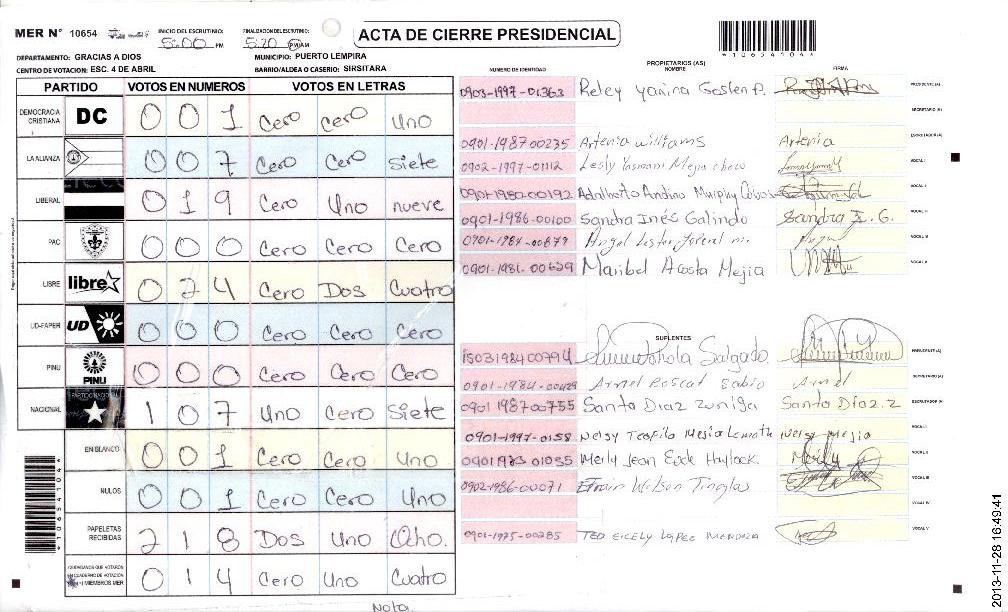 MER N° 10654
INICIO DEL ESCRUTINIO: 5:00 PM
FINALIZACION DEL ESCRUTINIO: 5:20 PM/AM
ACTA DE CIERRE PRESIDENCIAL
*10654104*
DEPARTAMENTO: GRACIAS A DIOS
MUNICIPIO: PUERTO LEMPIRA
CENTRO DE VOTACION: ESC. 4 DE ABRIL
BARRIO/ALDEA O CASERIO: SIRSITARA
PARTIDO VOTOS EN NUMEROS VOTOS EN LETRAS
DEMOCRACIA CRISTIANA DC 0 0 1 Cero cero uno
LA ALIANZA 0 0 7 Cero Cero siete
LIBERAL 0 1 9 Cero Uno nueve
PAC 0 0 0 Cero Cero Cero
LIBRE libre 0 2 4 Cero Dos Cuatro
UD-FAPER UD 0 0 0 Cero Cero Cero
PINU PINU 0 0 0 Cero Cero Cero
NACIONAL PARTIDO NACIONAL 1 0 7 Uno Cero Siete
EN BLANCO 0 0 1 Cero Cero Uno
NULOS 0 0 1 Cero Cero Uno
PAPELETAS RECIBIDAS 2 1 8 Dos Uno Ocho.
CIUDADANOS QUE VOTARON EN CUADERNO DE VOTACION MIEMBROS MER 0 1 4 Cero Uno Cuatro
Nota.
NUMERO DE IDENTIDAD PROPIETARIOS (AS) NOMBRE FIRMA
0903-1997-01363 Reley Yanira PRESIDENTE (A)
SECRETARIO (A)
0901-1987 00235 Artenia Williams Artenia ESCRUTADOR (A)
0902-1997-01112 Lesly VOCAL I
0901-1980-00192 Adalberto Andino Murphy VOCAL II
0901-1986-00100 Sandra Inés Galindo Sandra I. G. VOCAL III
0901-1984-00879 Angel Lester VOCAL IV
0901-1981-00629 Maribel Acosta Mejia VOCAL V
SUPLENTES
1503198400794 Salgado PRESIDENTE (A)
0901-1984-00429 Arnel Arnel SECRETARIO (A)
0901 1987 00755 Santo Diaz Zuniga Santo Diaz. Z ESCRUTADOR (A)
0901-1997-0158 Neisy Teofila Mejia Neisy Mejia VOCAL I
Merly Jean Haylock. Merly VOCAL II
0902-1986-00071 Efrain Wilson VOCAL III
VOCAL IV
0901-1975-00285 TED EICELY LOPEZ MENDOZA VOCAL V
*10654104*
2013-11-28 16:49:41